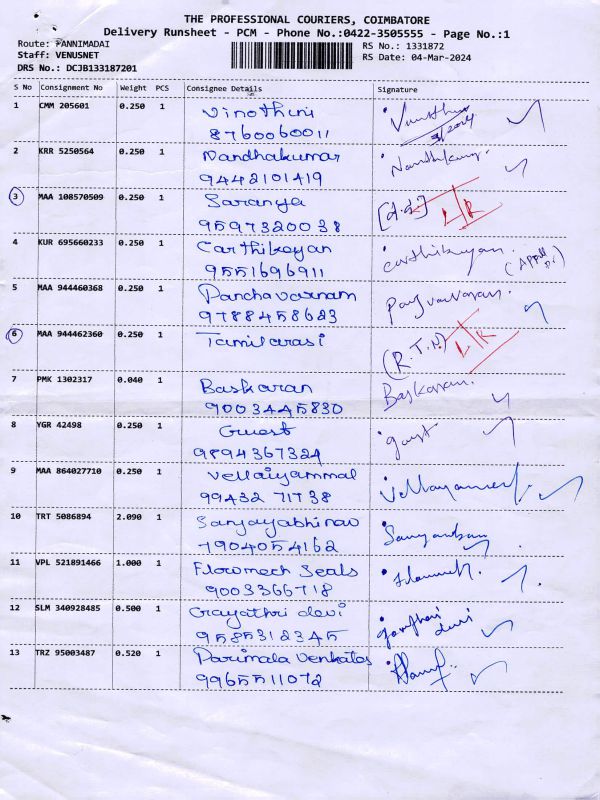 THE PROFESSIONAL COURIERS, COIMBATORE
Delivery Runsheet - PCM - Phone No.:0422-3505555 - Page No.:1
Route: PANNIMADAI
RS No.: 1331872
Staff: VENUSNET
RS Date: 04-Mar-2024
DRS No.: DCJB133187201
S No Consignment No Weight PCS Consignee Details Signature
1 CMM 205601 0.250 1 Vinothini
8760060011
2 KRR 5250564 0.250 1 Nandhakumar Nandhakumar
9442101419
3 MAA 108570509 0.250 1 Saranya [d.d] L/R
9597320038
4 KUR 695660233 0.250 1 Carthikeyan carthikeyan.
9551696911
5 MAA 944460368 0.250 1 Panchavarnam
9788458623
6 MAA 944462360 0.250 1 Tamilarasi (R.T.N) L/R
7 PMK 1302317 0.040 1 Baskaran Baskaran.
9003445830
8 YGR 42498 0.250 1 Guest guest
9894367324
9 MAA 864027710 0.250 1 Vellaiyammal
99432 71738
10 TRT 5086894 2.090 1 Sanjayabhinav
7904054162
11 VPL 521891466 1.000 1 Flowmech Seals
9003366718
12 SLM 340928485 0.500 1 Gayathri devi gayathari devi
9585312345
13 TRZ 95003487 0.520 1 Parimala Venkates
9965511072